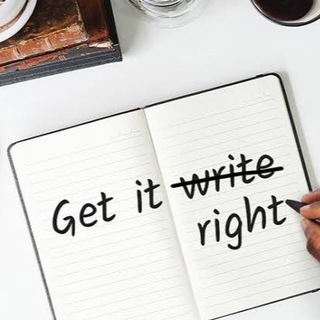 Get it write
right